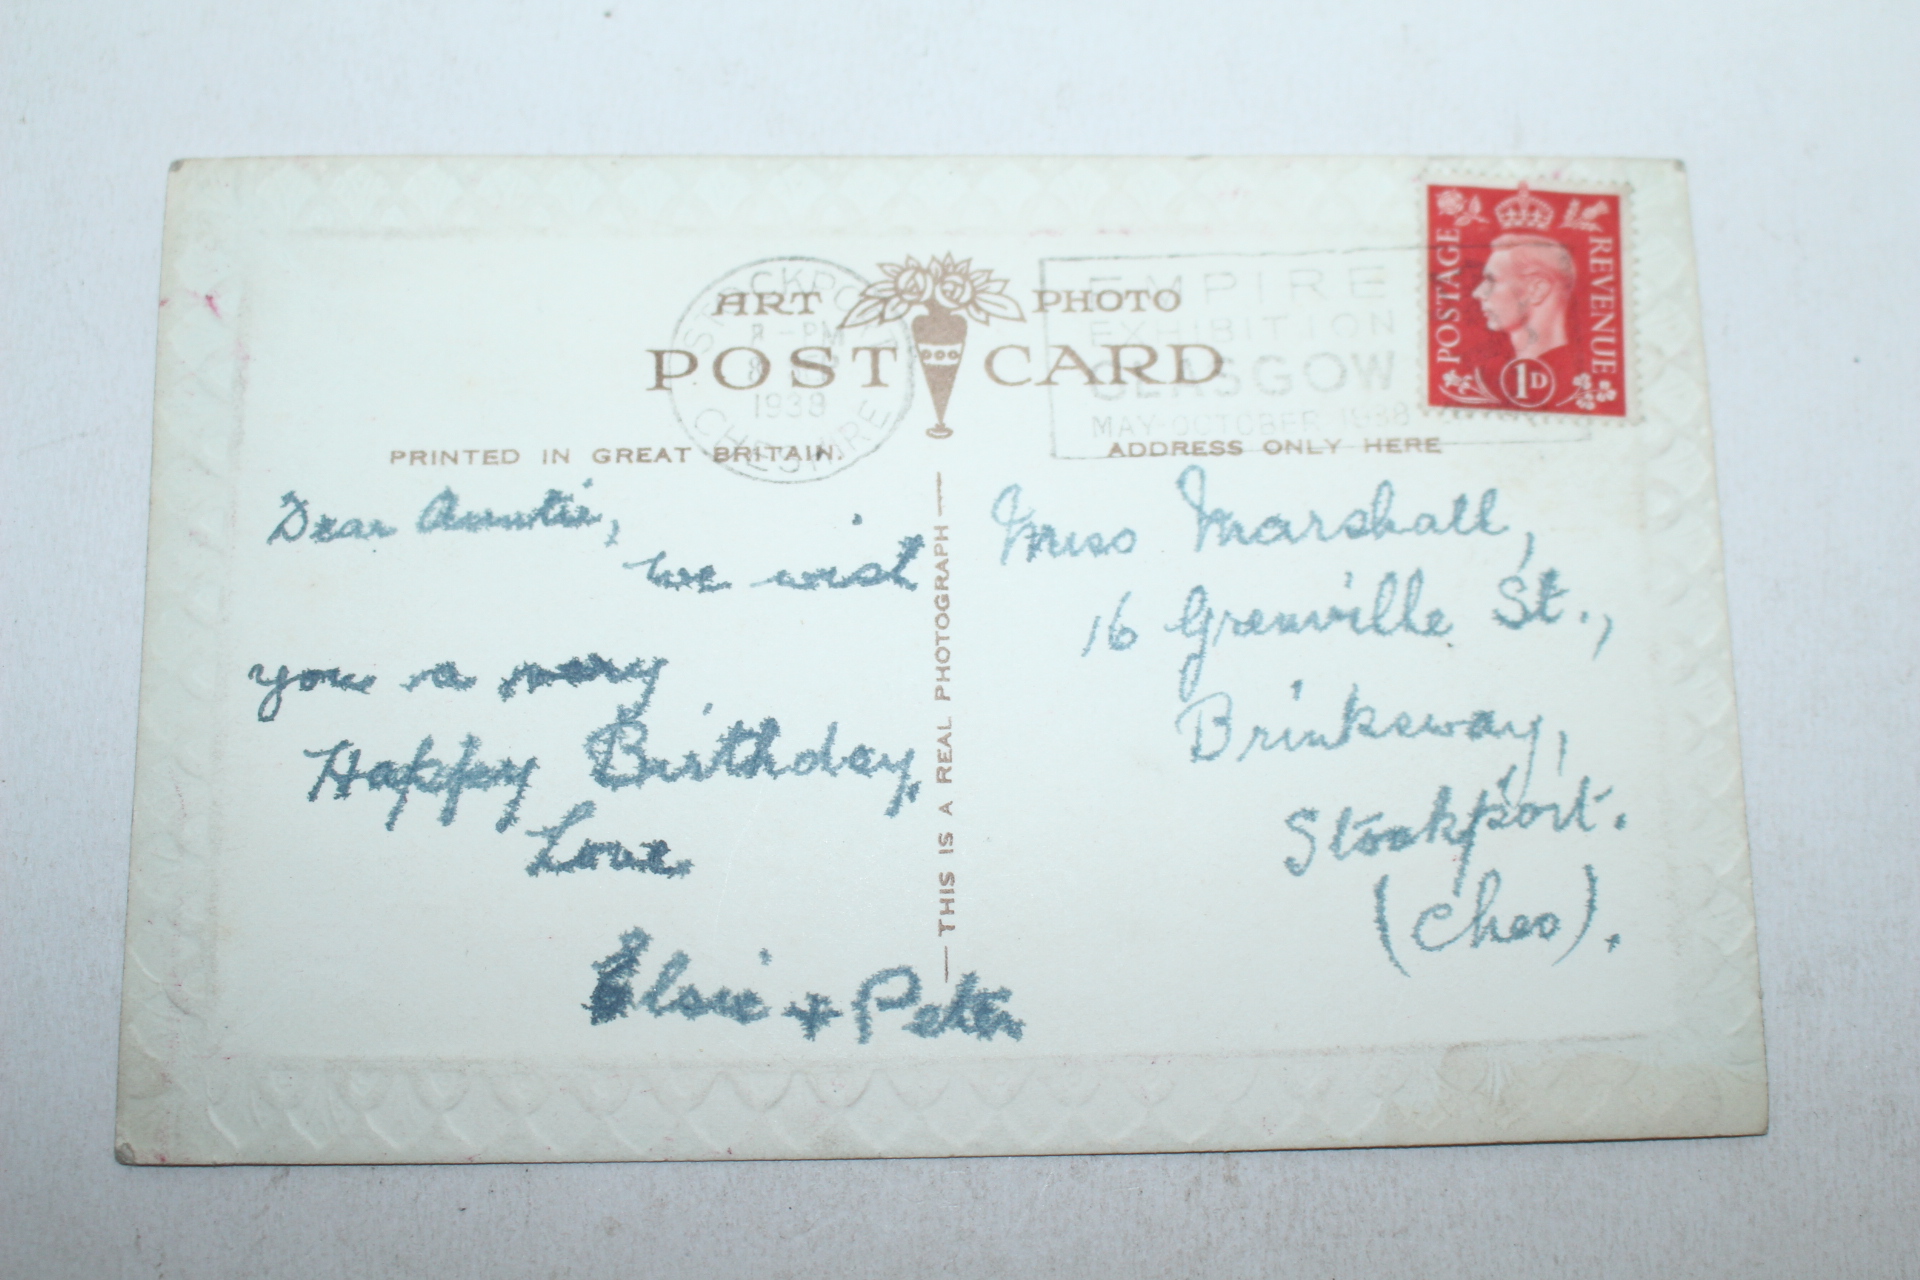 ART PHOTO
POST CARD
PRINTED IN GREAT BRITAIN.
ADDRESS ONLY HERE
STOCKPORT
-PM
8
CHESHIRE
EMPIRE
EXHIBITION
GLASGOW
MAY-OCTOBER 1938
POSTAGE
REVENUE
1D
Dear Auntie,
we wish
you a very
Happy Birthday,
Love
Elsie + Peter
— THIS IS A REAL PHOTOGRAPH —
Miss Marshall,
16 Grenville St.,
Brinksway,
Stockport.
(Ches).